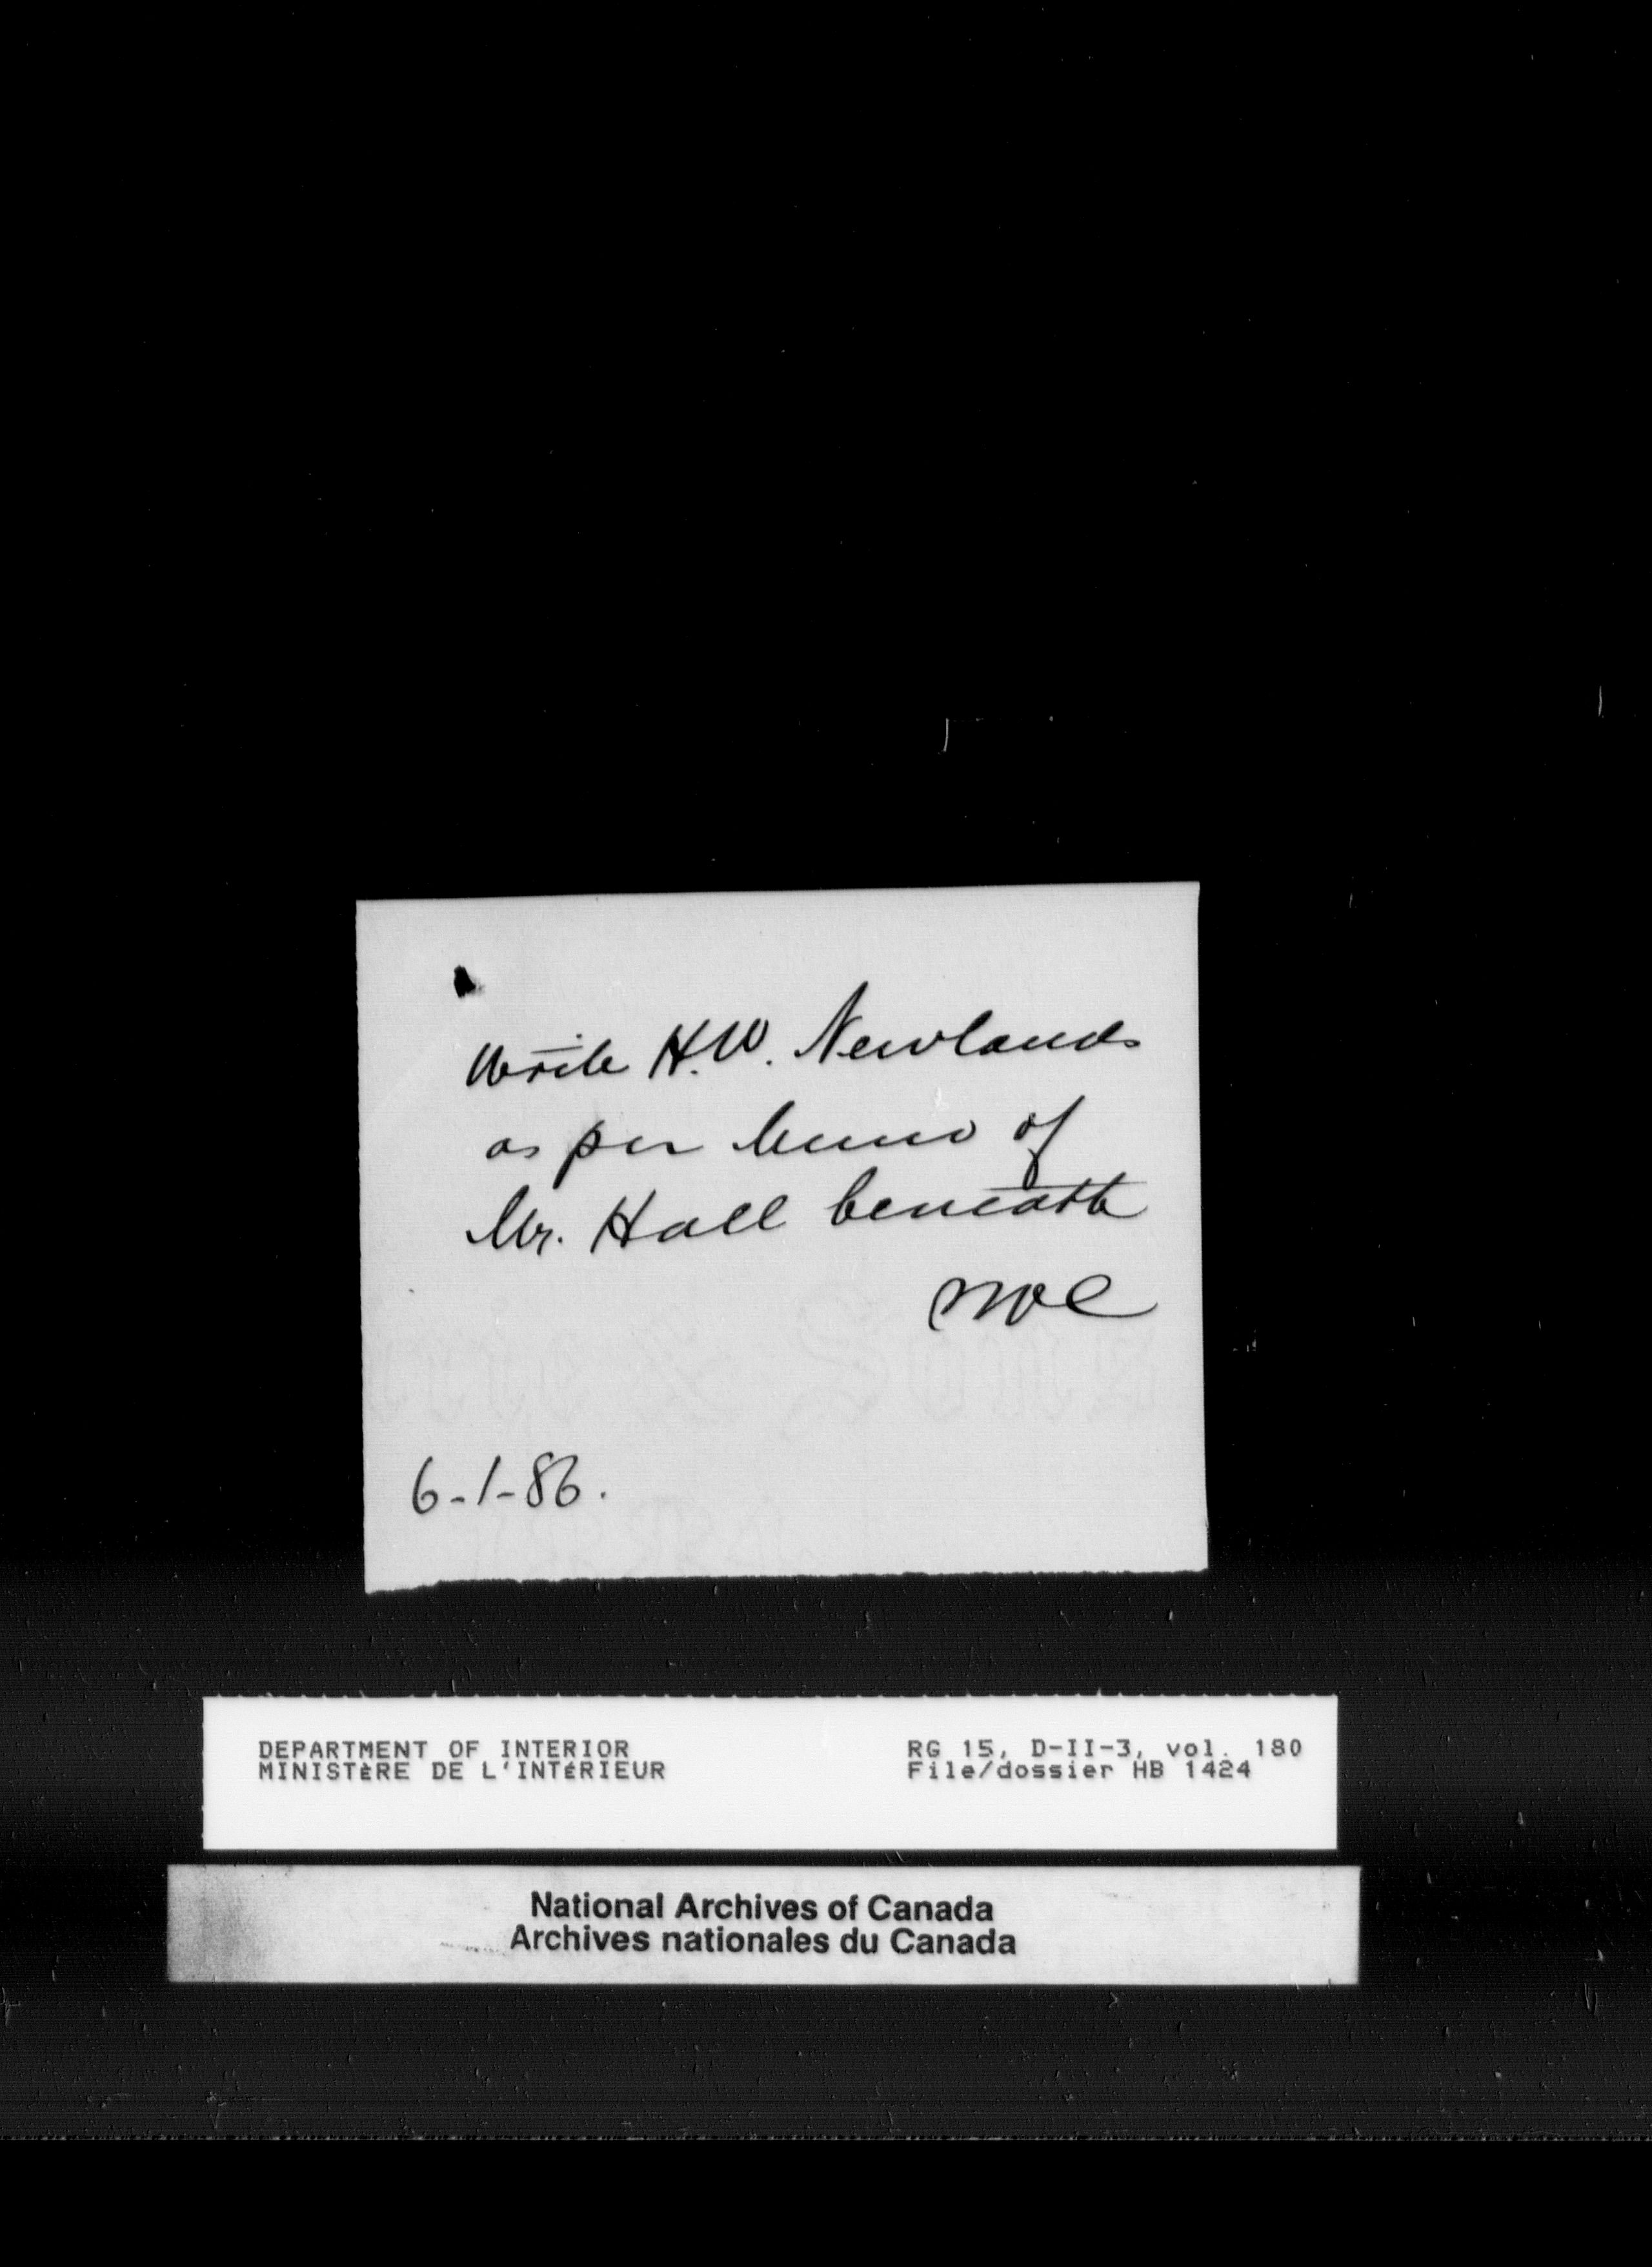 Write H.W. Newlands
as per Memo of
Mr. Hall beneath
6-1-86.
DEPARTMENT OF INTERIOR
MINISTÈRE DE L'INTÉRIEUR
RG 15, D-II-3, vol. 180
File/dossier HB 1424
National Archives of Canada
Archives nationales du Canada